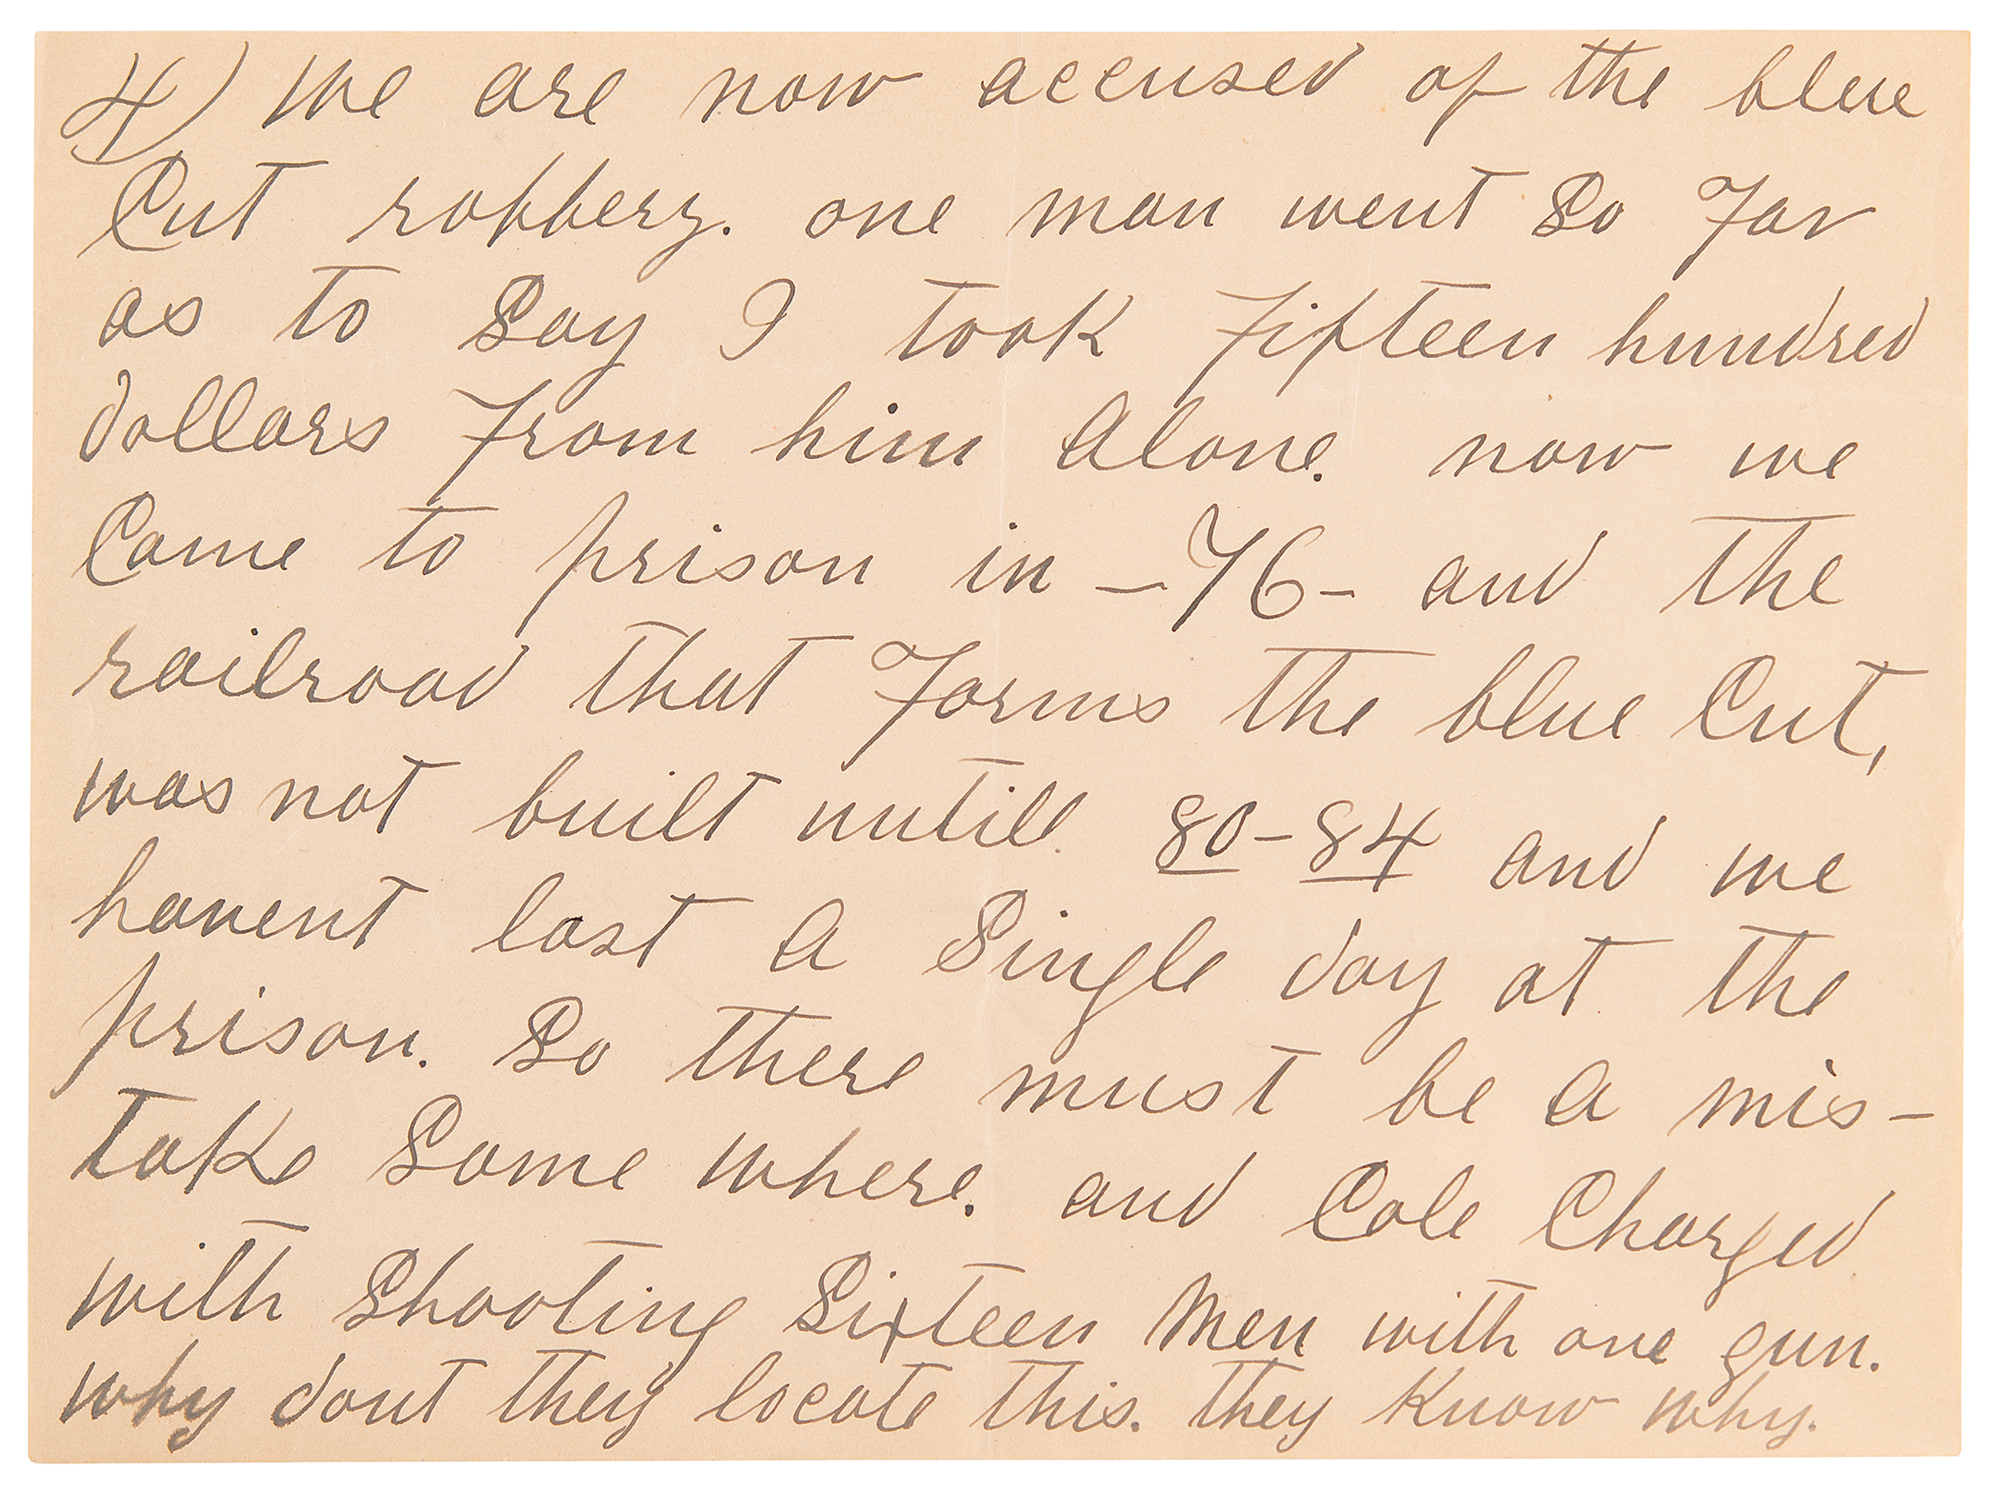 4) We are now accused of the blue
Cut robbery. one man went So Far
as to Say I took Fifteen hundred
dollars From him Alone. now we
Came to prison in -76- and the
railroad that Forms the blue Cut,
was not built untill 80-84 and we
havent lost A Single day at the
prison. So there must be A mis-
take Some where. and Cole Charged
with Shooting Sixteen Men with one gun.
why dont they locate this. they Know why.